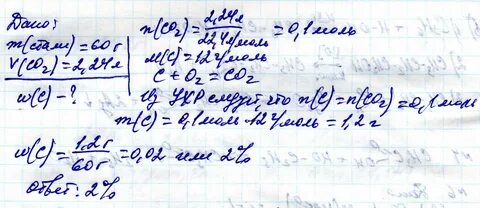 Дано:
m(стали)=60г
V(CO₂)=2,24л
w(C)-?
n(CO₂)=2,24л/22,4л/моль=0,1моль
M(C)=12г/моль
C+O₂=CO₂
Из УХР следует, что n(C)=n(CO₂)=0,1моль
m(C)=0,1моль·12г/моль=1,2г
w(C)=1,2г/60г=0,02 или 2%
Ответ: 2%